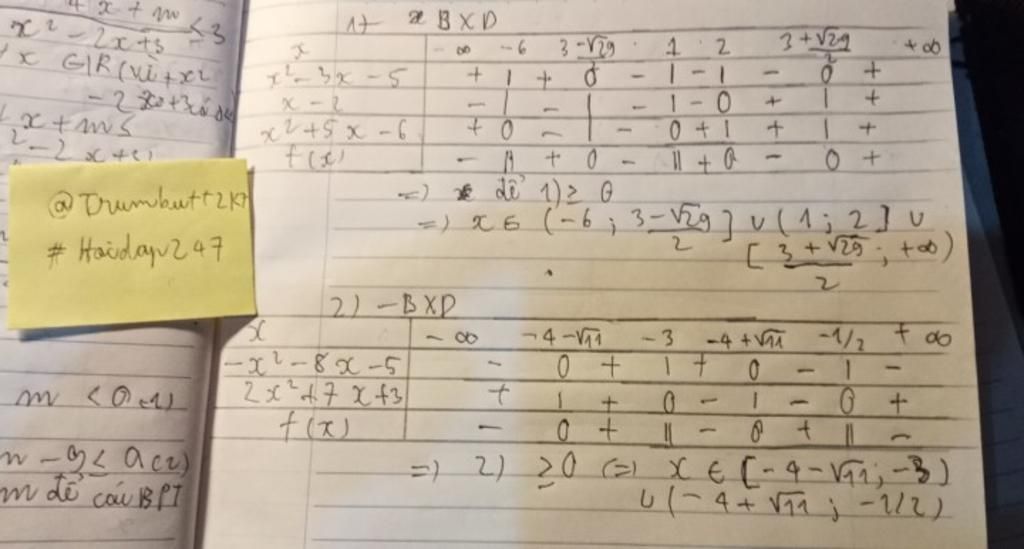 x + m < 3
x² - 2x + 3
x ∈ IR (vì + x²
x + m ≤
- 2 x + 3
@Trumbutt2k7
# Hoidap247
m < 0 (1)
m - 9 < 0 (2)
m để các BPT
1) BXD
x -∞ -6 3-√29/2 1 2 3+√29/2 +∞
x² - 3x - 5 + | + 0 - | - | - 0 +
x - 2 - | - | - | - 0 + | +
x² + 5x - 6 + 0 - | - 0 + | + | +
f(x) - || + 0 - || + 0 - 0 +
=) để 1) ≥ 0
=) x ∈ (-6 ; 3-√29/2 ] ∪ (1 ; 2 ] ∪
[ 3+√29/2 ; +∞)
2) - BXD
x -∞ -4-√11 -3 -4+√11 -1/2 +∞
-x² - 8x - 5 - 0 + | + 0 - | -
2x² + 7x + 3 + | + 0 - | - 0 +
f(x) - 0 + || - 0 + || -
=) 2) ≥ 0 (=) x ∈ [-4-√11 ; -3)
∪ (-4+√11 ; -1/2)